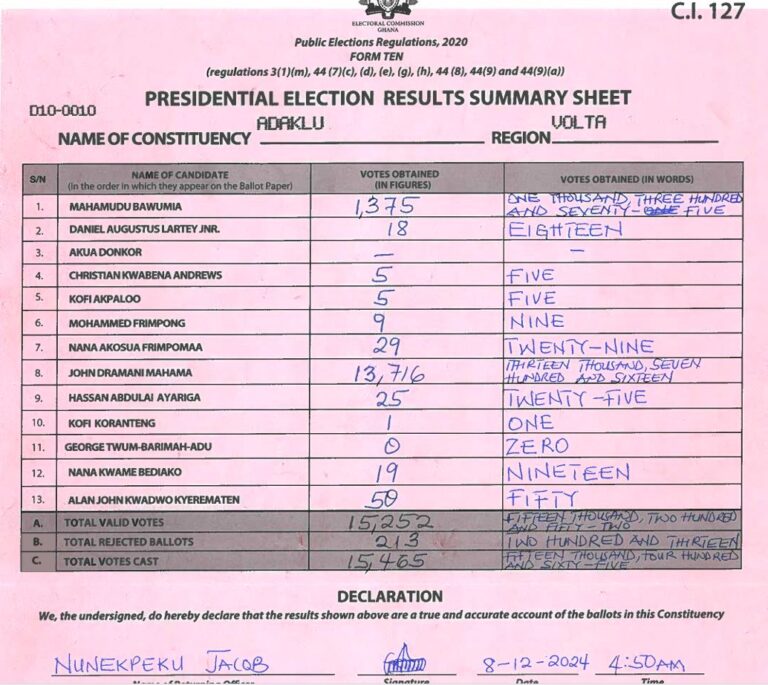 C.I. 127
ELECTORAL COMMISSION
GHANA
Public Elections Regulations, 2020
FORM TEN
(regulations 3(1)(m), 44 (7)(c), (d), (e), (g), (h), 44 (8), 44(9) and 44(9)(a))
PRESIDENTIAL ELECTION RESULTS SUMMARY SHEET
D10-0010
NAME OF CONSTITUENCY ADAKLU REGION VOLTA
S/N NAME OF CANDIDATE (in the order in which they appear on the Ballot Paper) VOTES OBTAINED (IN FIGURES) VOTES OBTAINED (IN WORDS)
1. MAHAMUDU BAWUMIA 1,375 ONE THOUSAND, THREE HUNDRED AND SEVENTY-FIVE
2. DANIEL AUGUSTUS LARTEY JNR. 18 EIGHTEEN
3. AKUA DONKOR — —
4. CHRISTIAN KWABENA ANDREWS 5 FIVE
5. KOFI AKPALOO 5 FIVE
6. MOHAMMED FRIMPONG 9 NINE
7. NANA AKOSUA FRIMPOMAA 29 TWENTY-NINE
8. JOHN DRAMANI MAHAMA 13,716 THIRTEEN THOUSAND, SEVEN HUNDRED AND SIXTEEN
9. HASSAN ABDULAI AYARIGA 25 TWENTY-FIVE
10. KOFI KORANTENG 1 ONE
11. GEORGE TWUM-BARIMAH-ADU 0 ZERO
12. NANA KWAME BEDIAKO 19 NINETEEN
13. ALAN JOHN KWADWO KYEREMATEN 50 FIFTY
A. TOTAL VALID VOTES 15,252 FIFTEEN THOUSAND, TWO HUNDRED AND FIFTY-TWO
B. TOTAL REJECTED BALLOTS 213 TWO HUNDRED AND THIRTEEN
C. TOTAL VOTES CAST 15,465 FIFTEEN THOUSAND, FOUR HUNDRED AND SIXTY-FIVE
DECLARATION
We, the undersigned, do hereby declare that the results shown above are a true and accurate account of the ballots in this Constituency
NUNEKPEKU JACOB 8-12-2024 4:50AM
Name of Returning Officer Signature Date Time